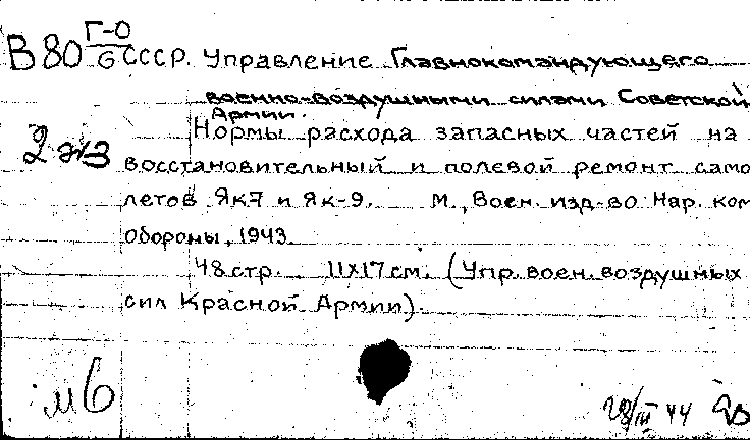 В 80 Г-О/6 СССР. Управление Главнокомандующего
военно-воздушными силами Советской
Армии.
2 экз Нормы расхода запасных частей на
восстановительный и полевой ремонт само
летов Як7 и Як-9. М., Воен. изд-во Нар. ком
обороны, 1943.
48 стр. 11х17 см. (Упр. воен. воздушных
сил Красной Армии).
м6
28/III 44